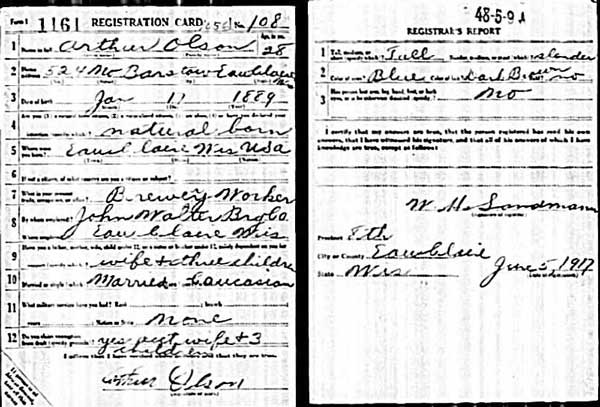 Form 1 1161 REGISTRATION CARD No. 108
1 Name in full Arthur Olson Age, in yrs. 28
2 Home address 524 No Barstow Eau Claire Wis
3 Date of birth Jan 17 1889
4 natural born
5 Where were you born? Eau Claire Wis USA
6 If not a citizen, of what country are you a citizen or subject?
7 What is your present trade, occupation, or office? Brewery Worker
8 By whom employed? John Walter Br Co
Where employed? Eau Claire Wis
9 Have you a father, mother, wife, child under 12, or a sister or brother under 12, solely dependent on you for
support (specify which)? wife & three children
10 Married or single (which)? Married Race (specify which)? Caucasian
11 What military service have you had? Rank branch
years Nation or State None
12 Do you claim exemption from draft (specify grounds)? yes wife & 3
children
I affirm that I have verified above answers and that they are true.
Arthur Olson
48-5-9 A
REGISTRAR'S REPORT
1 Tall, medium, or short (specify which)? Tall Slender, medium, or stout (which)? slender
2 Color of eyes? Blue Color of hair? Dark Brown Bald? No
3 Has person lost arm, leg, hand, foot, or both
eyes, or is he otherwise disabled (specify)? No
I certify that my answers are true, that the person registered has read his own
answers, that I have witnessed his signature, and that all of his answers of which I have
knowledge are true, except as follows:
W H Sandmann
(Signature of registrar)
Precinct 8th
City or County Eau Claire
State Wis June 5, 1917
(Date of registration)